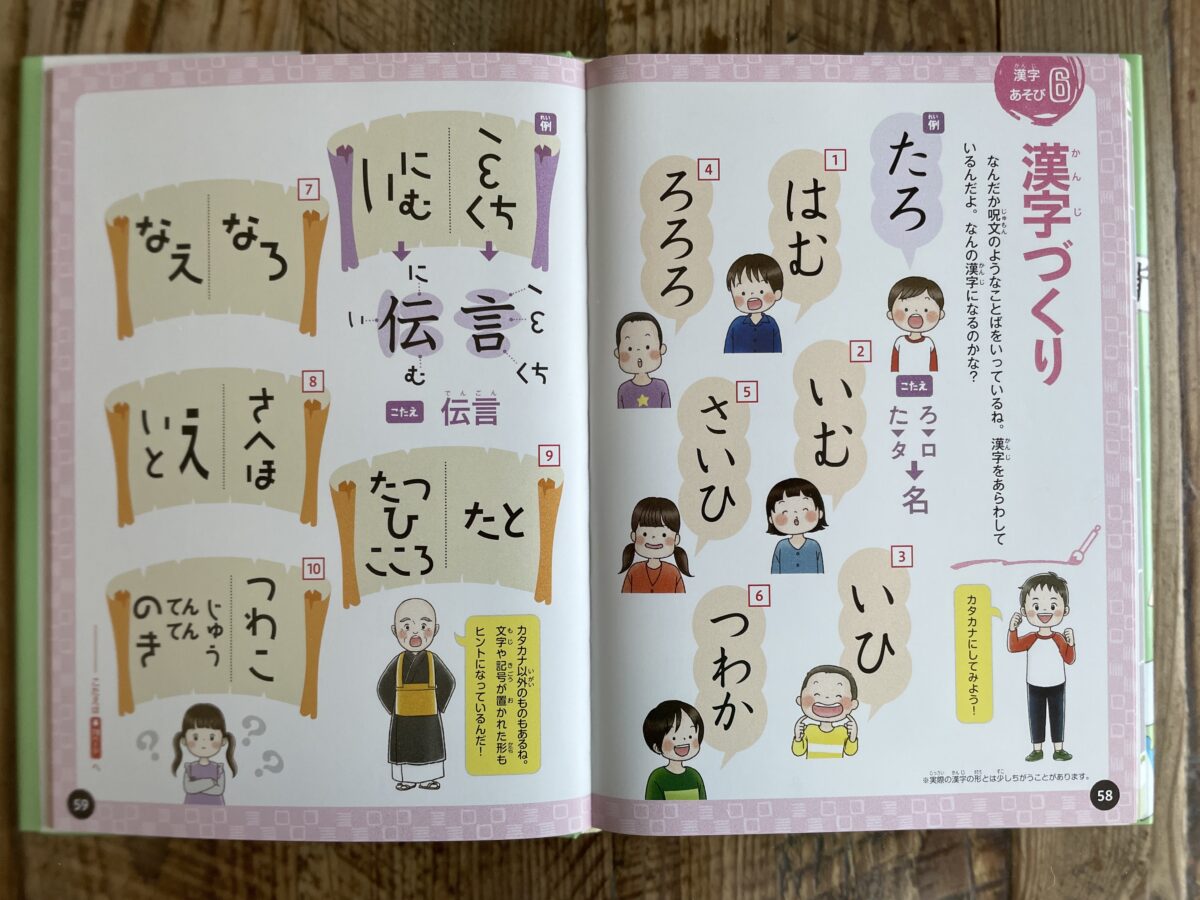 漢字
あそび6
漢字づくり
かんじ
なんだか呪文のようなことばをいっているね。漢字をあらわして
いるんだよ。なんの漢字になるのかな？
カタカナにしてみよう！
例
たろ
こたえ
ろ▶ロ
た▶タ
名
1
はむ
2
いむ
3
いひ
4
ろろろ
5
さいひ
6
つわか
※実際の漢字の形とは少しちがうことがあります。
58
例
くち
に
む
に
い
む
伝
言
くち
こたえ
伝言
でんごん
7
なろ
なえ
8
さへほ
え
いと
9
たと
たつ
ひ
こころ
10
つわこ
じゅう
てん
てん
のき
カタカナ以外のものもあるね。
文字や記号が置かれた形も
ヒントになっているんだ！
59